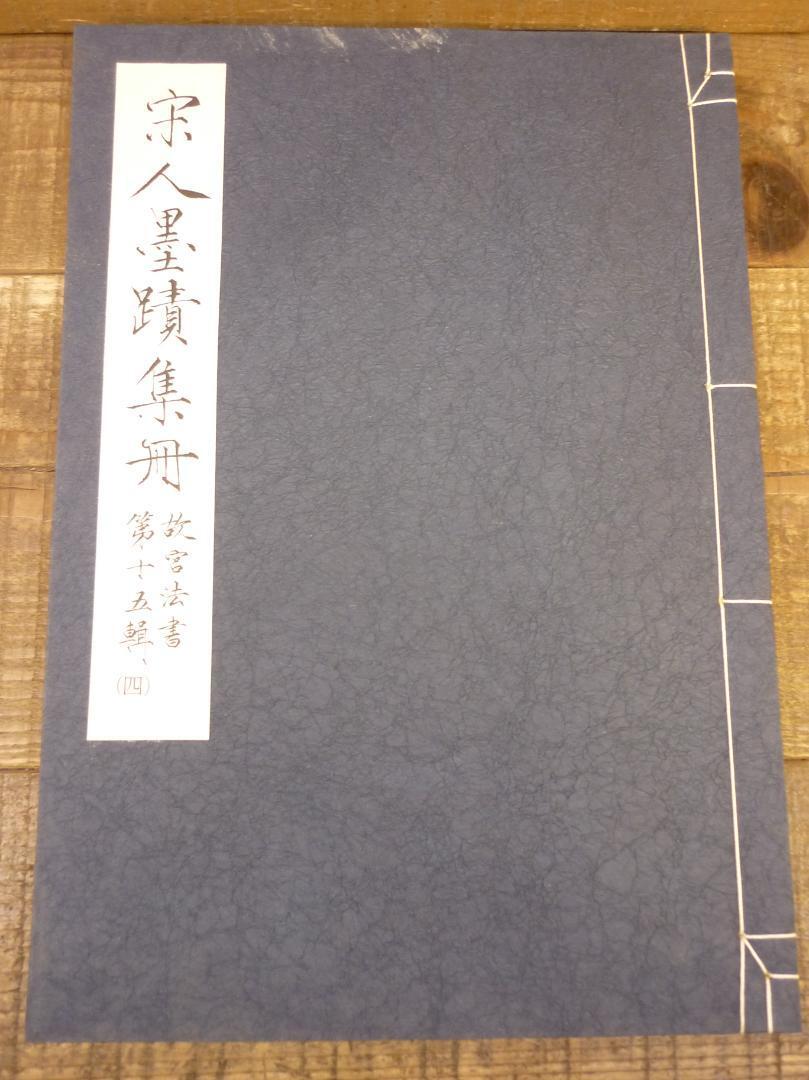 宋人墨蹟集冊
故宮法書
第十五輯
(四)